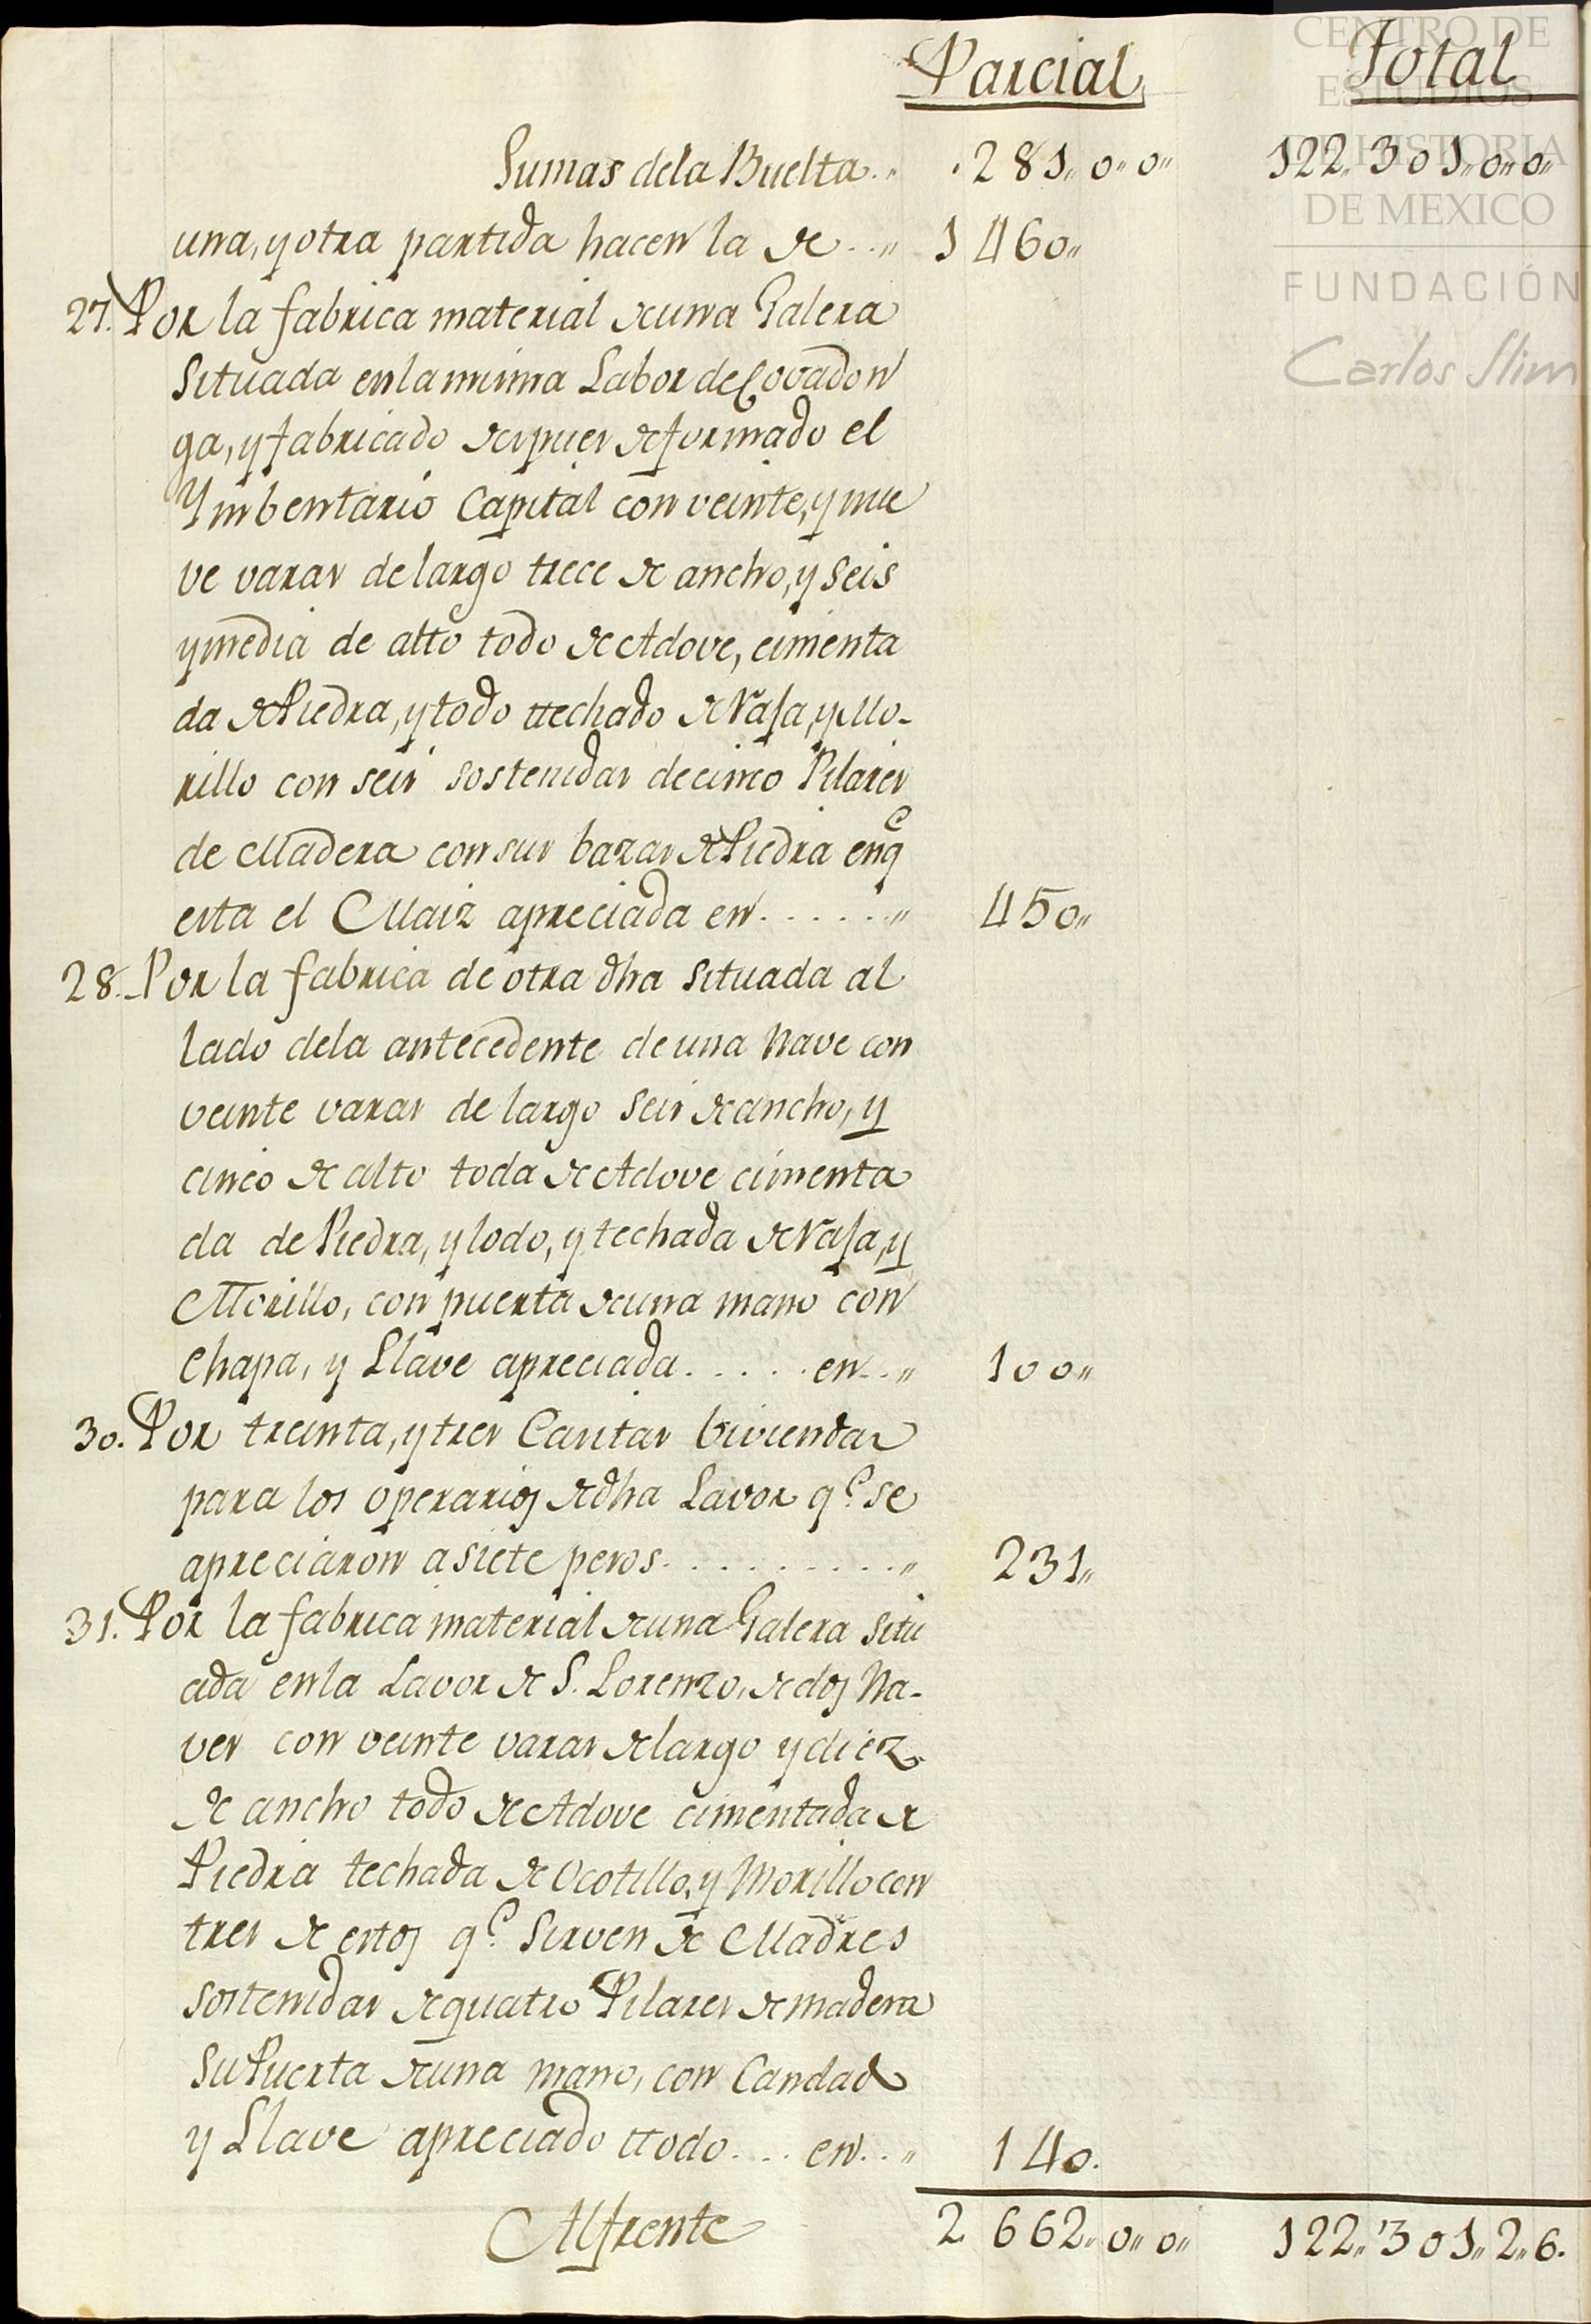 Parcial Total
Sumas dela Buelta.. ,, .281,, 0,, 0,, 122,, 301,, 0,, 0,,
una, y otra partida hacen la de . . ,, 1460,,
27. Por la fabrica material de una Galera
Situada en la misma Labor de Covadon
ga, y fabricado despues de formado el
Ymbentario Capital con veinte, y nue
ve varas de largo trece de ancho, y seis
y media de alto todo de Adove, cimenta
da de Piedra, y todo ttechado de Vasa, y Mo-
rillo con seis sostenidas de cinco Pilares
de Madera con sus bazas de Piedra en qe
esta el Maiz apreciada en . . . . . . ,, 450,,
28. Por la fabrica de otra dha situada al
lado dela antecedente de una Nave con
veinte varas de largo seis de ancho, y
cinco de alto toda de Adove cimenta
da de Piedra, y lodo, y techada de Vasa, y
Morillo, con puerta de una mano con
Chapa, y Llave apreciada . . . . . en . . ,, 100,,
30. Por treinta, y tres Casitas biviendas
para los operarios de dha Lavor qe. se
apreciaron a siete pesos . . . . . . . . . ,, 231,,
31. Por la fabrica material de una Galera situ
ada en la Lavor de S. Lorenzo, de dos Na-
ves con veinte varas de largo y diez
de ancho todo de Adove cimentada de
Piedra techada de Ocotillo, y Morillo con
tres de estos qe. Sirven de Madres
sostenidas de quatro Pilares de madera
su Puerta de una mano, con Candado
y Llave apreciado ttodo . . . en . . ,, 140.
Al frente 2 662,, 0,, 0,, 122,, 301,, 2,, 6.
CENTRO DE
ESTUDIOS
DE HISTORIA
DE MEXICO
FUNDACIÓN
Carlos Slim